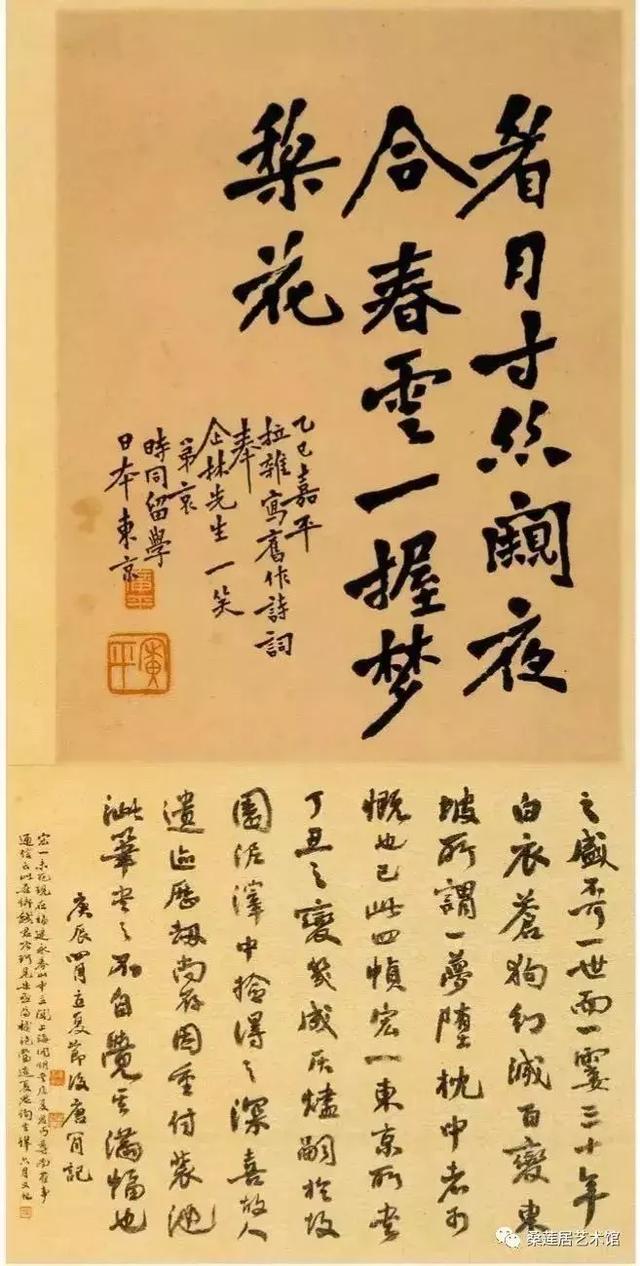 月寸絲夜
合春雲一握梦
棃花
乙巳嘉平
拉雜寫舊作詩詞
奉
企林先生一笑
弟哀
時同留學
日本東京
廣平
之盛一世而一霎三十年
白衣蒼狗幻滅百變東
坡所謂一夢墮枕中者可
慨也已此四幀宏一東京所書
丁丑之變幾成灰燼嗣於故
園泥澤中撿得之深喜故人
遺迹歷劫尚存因重付裝池
泚筆書之不自覺其滿幅也
庚辰四月立夏節後唐肯記
桑莲居艺术馆